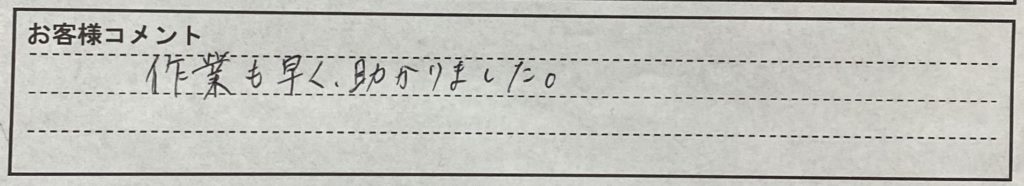 お客様コメント
作業も早く、助かりました。